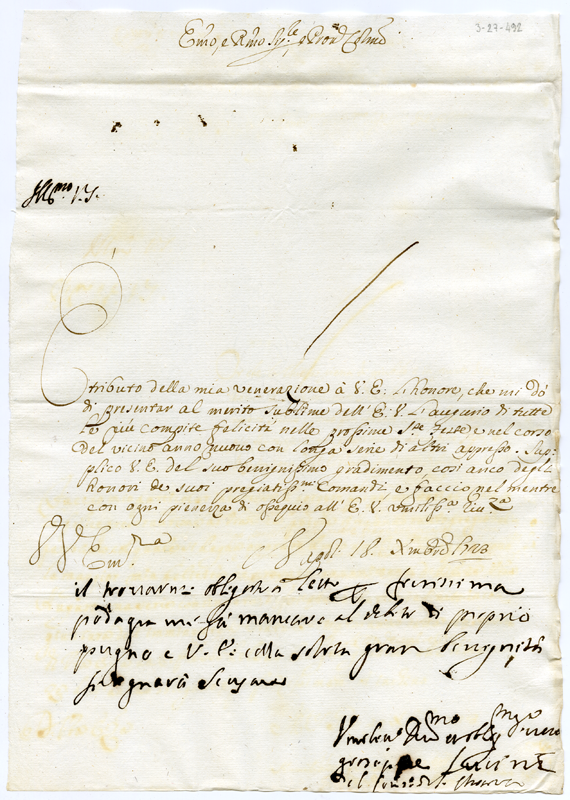 Emo, e Rmo Sig.re e Pron Colmo
3-27-492
Ill.mo V.S.
È tributo della mia venerazione à V. E. l'honore, che mi dò
di presentar al merito sublime dell'E. V. l'augurio di tutte
le più compite felicità nelle prossime S.te feste e nel corso
del vicino anno nuovo con longa serie di altri appresso. Sup-
plico V. E. del suo benignissimo gradimento, così anco degl'
honori de suoi pregiatiss.mi comandi, e faccio nel mentre
con ogni pienezza di ossequio all'E. V. umiliss.a riu.za
Di V. Em.za
Napoli 18. Xmbre 1723
il trovarmi obligato a letto fierissima
podagra mi fà mancare al debito di proprio
pugno e V. E. colla solita gran benignità
si degnarà scusare
giuseppe